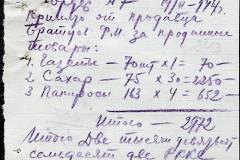 Принято от продавца
Братусь Р.М. за проданные
товары:
1. Газеты - 70 шт х 1 = 70 -
2 Сахар - 75 х 30 = 2250 -
3 Папиросы 163 х 4 = 652 -
Итого - 2972
Итого Две тысячи девятьсот
семьдесят две